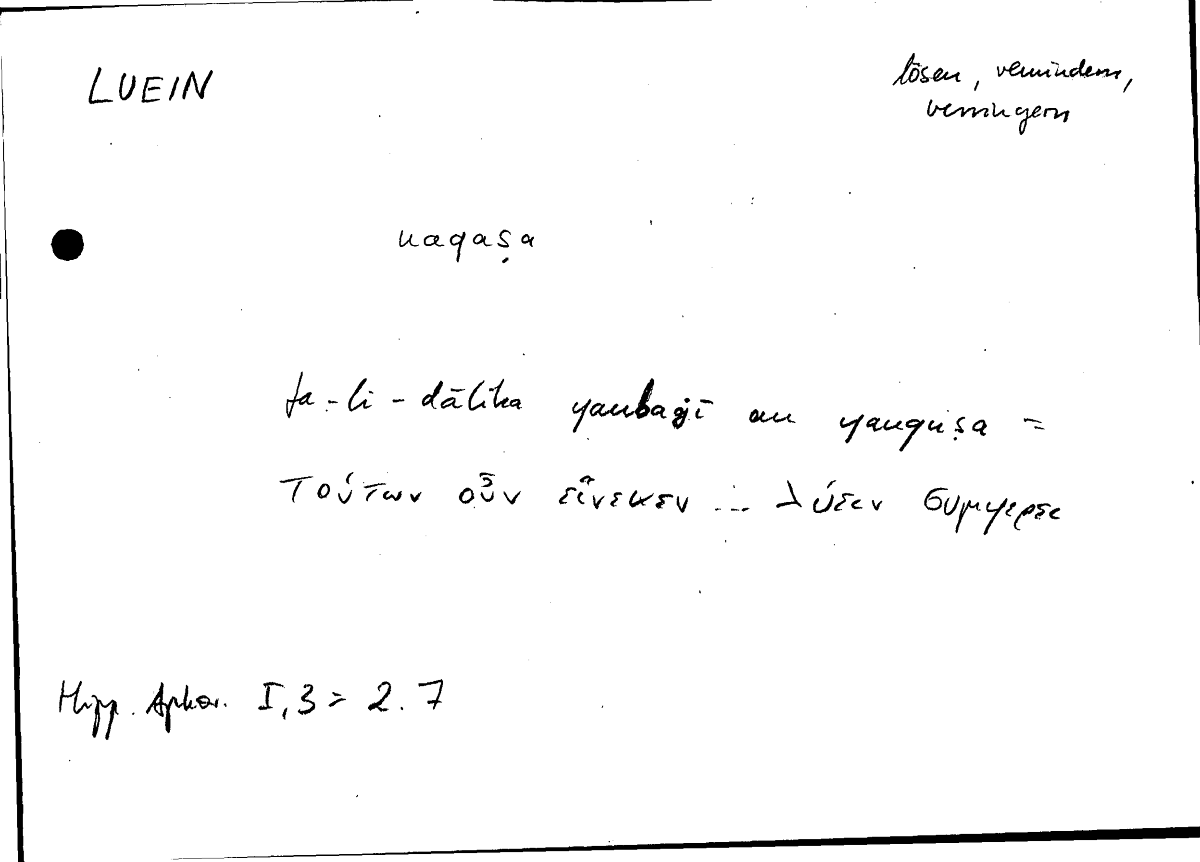 LUEIN
lösen, vermindern,
verringern
naqaṣa
fa-li-ḏālika yanbaġī an yanquṣa =
τούτων οὖν εἵνεκεν ... λύειν συμφέρει
Hipp. Aphor. I,3 = 2.7